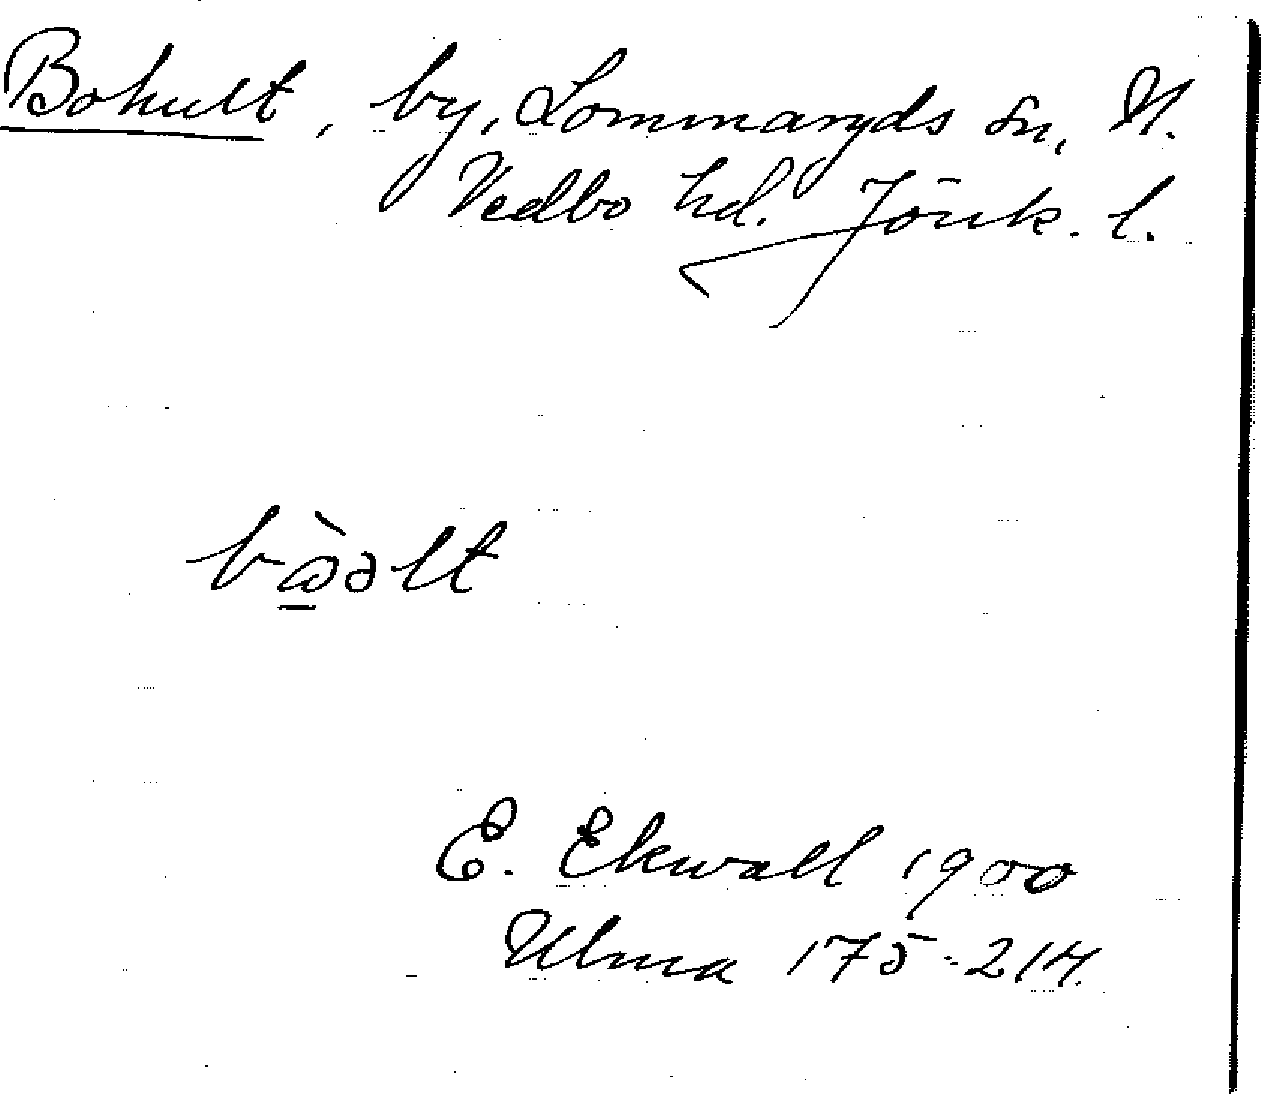 Bohult, by, Lommaryds sn, N.
Vedbo hd. Jönk. l.
E. Ekwall 1900
Ulma 175-214.